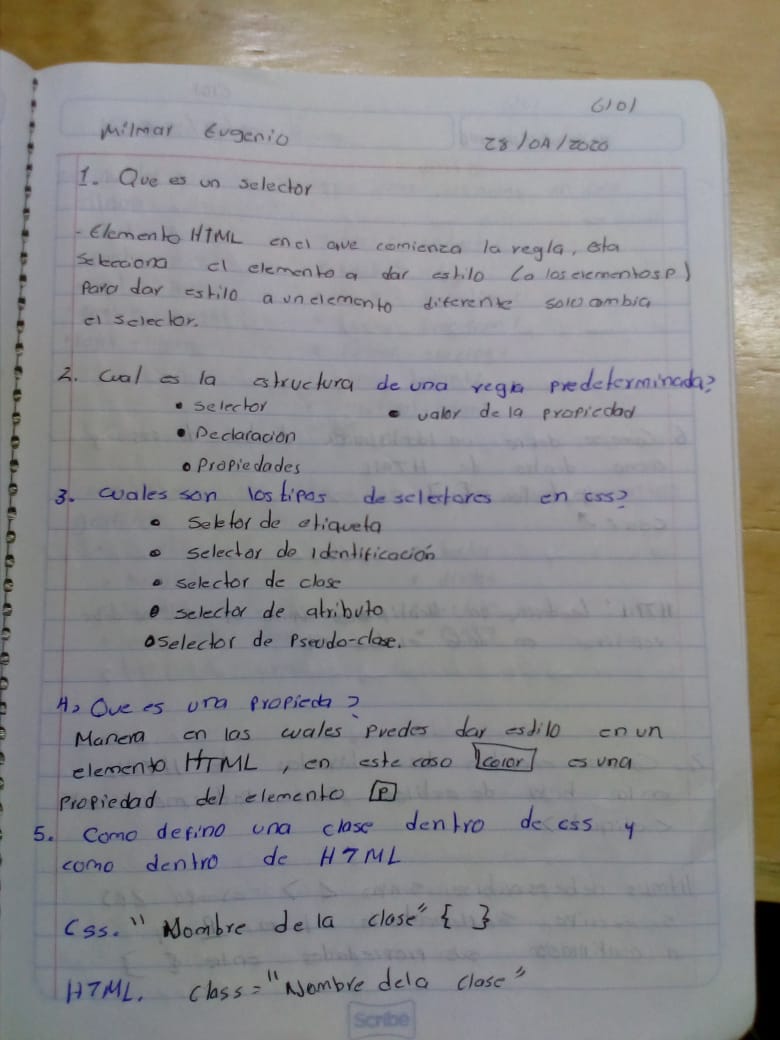 6101
Milmar Eugenio
28/04/2020
1. Que es un selector
- Elemento HTML en el que comienza la regla, esta
selecciona el elemento a dar estilo (a los elementos P)
Para dar estilo a un elemento diferente solo cambia
el selector.
2. Cual es la estructura de una regla predeterminada?
• selector • valor de la propiedad
• Declaración
• Propiedades
3. Cuales son los tipos de selectores en css?
• Seletor de etiqueta
• selector de identificación
• selector de clase
• selector de atributo
• selector de Pseudo-clase.
4, Que es una propieda?
Manera en las cuales puedes dar estilo en un
elemento HTML, en este caso color es una
Propiedad del elemento P
5. Como defino una clase dentro de css y
como dentro de HTML
Css. "Nombre de la clase" { }
HTML. class="Nombre dela clase"
Scribe